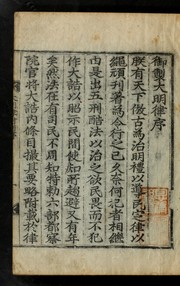 御製大明律序
朕有天下倣古為治明禮以導民定律以
繩頑刊著為令行之已久奈何犯者相繼
由是出五刑酷法以治之欲民畏而不犯
作大誥以昭示民間使知所趨避又有年
矣然法在有司民不周知特敕六部都察
院官將大誥內條目撮其要略附載於律